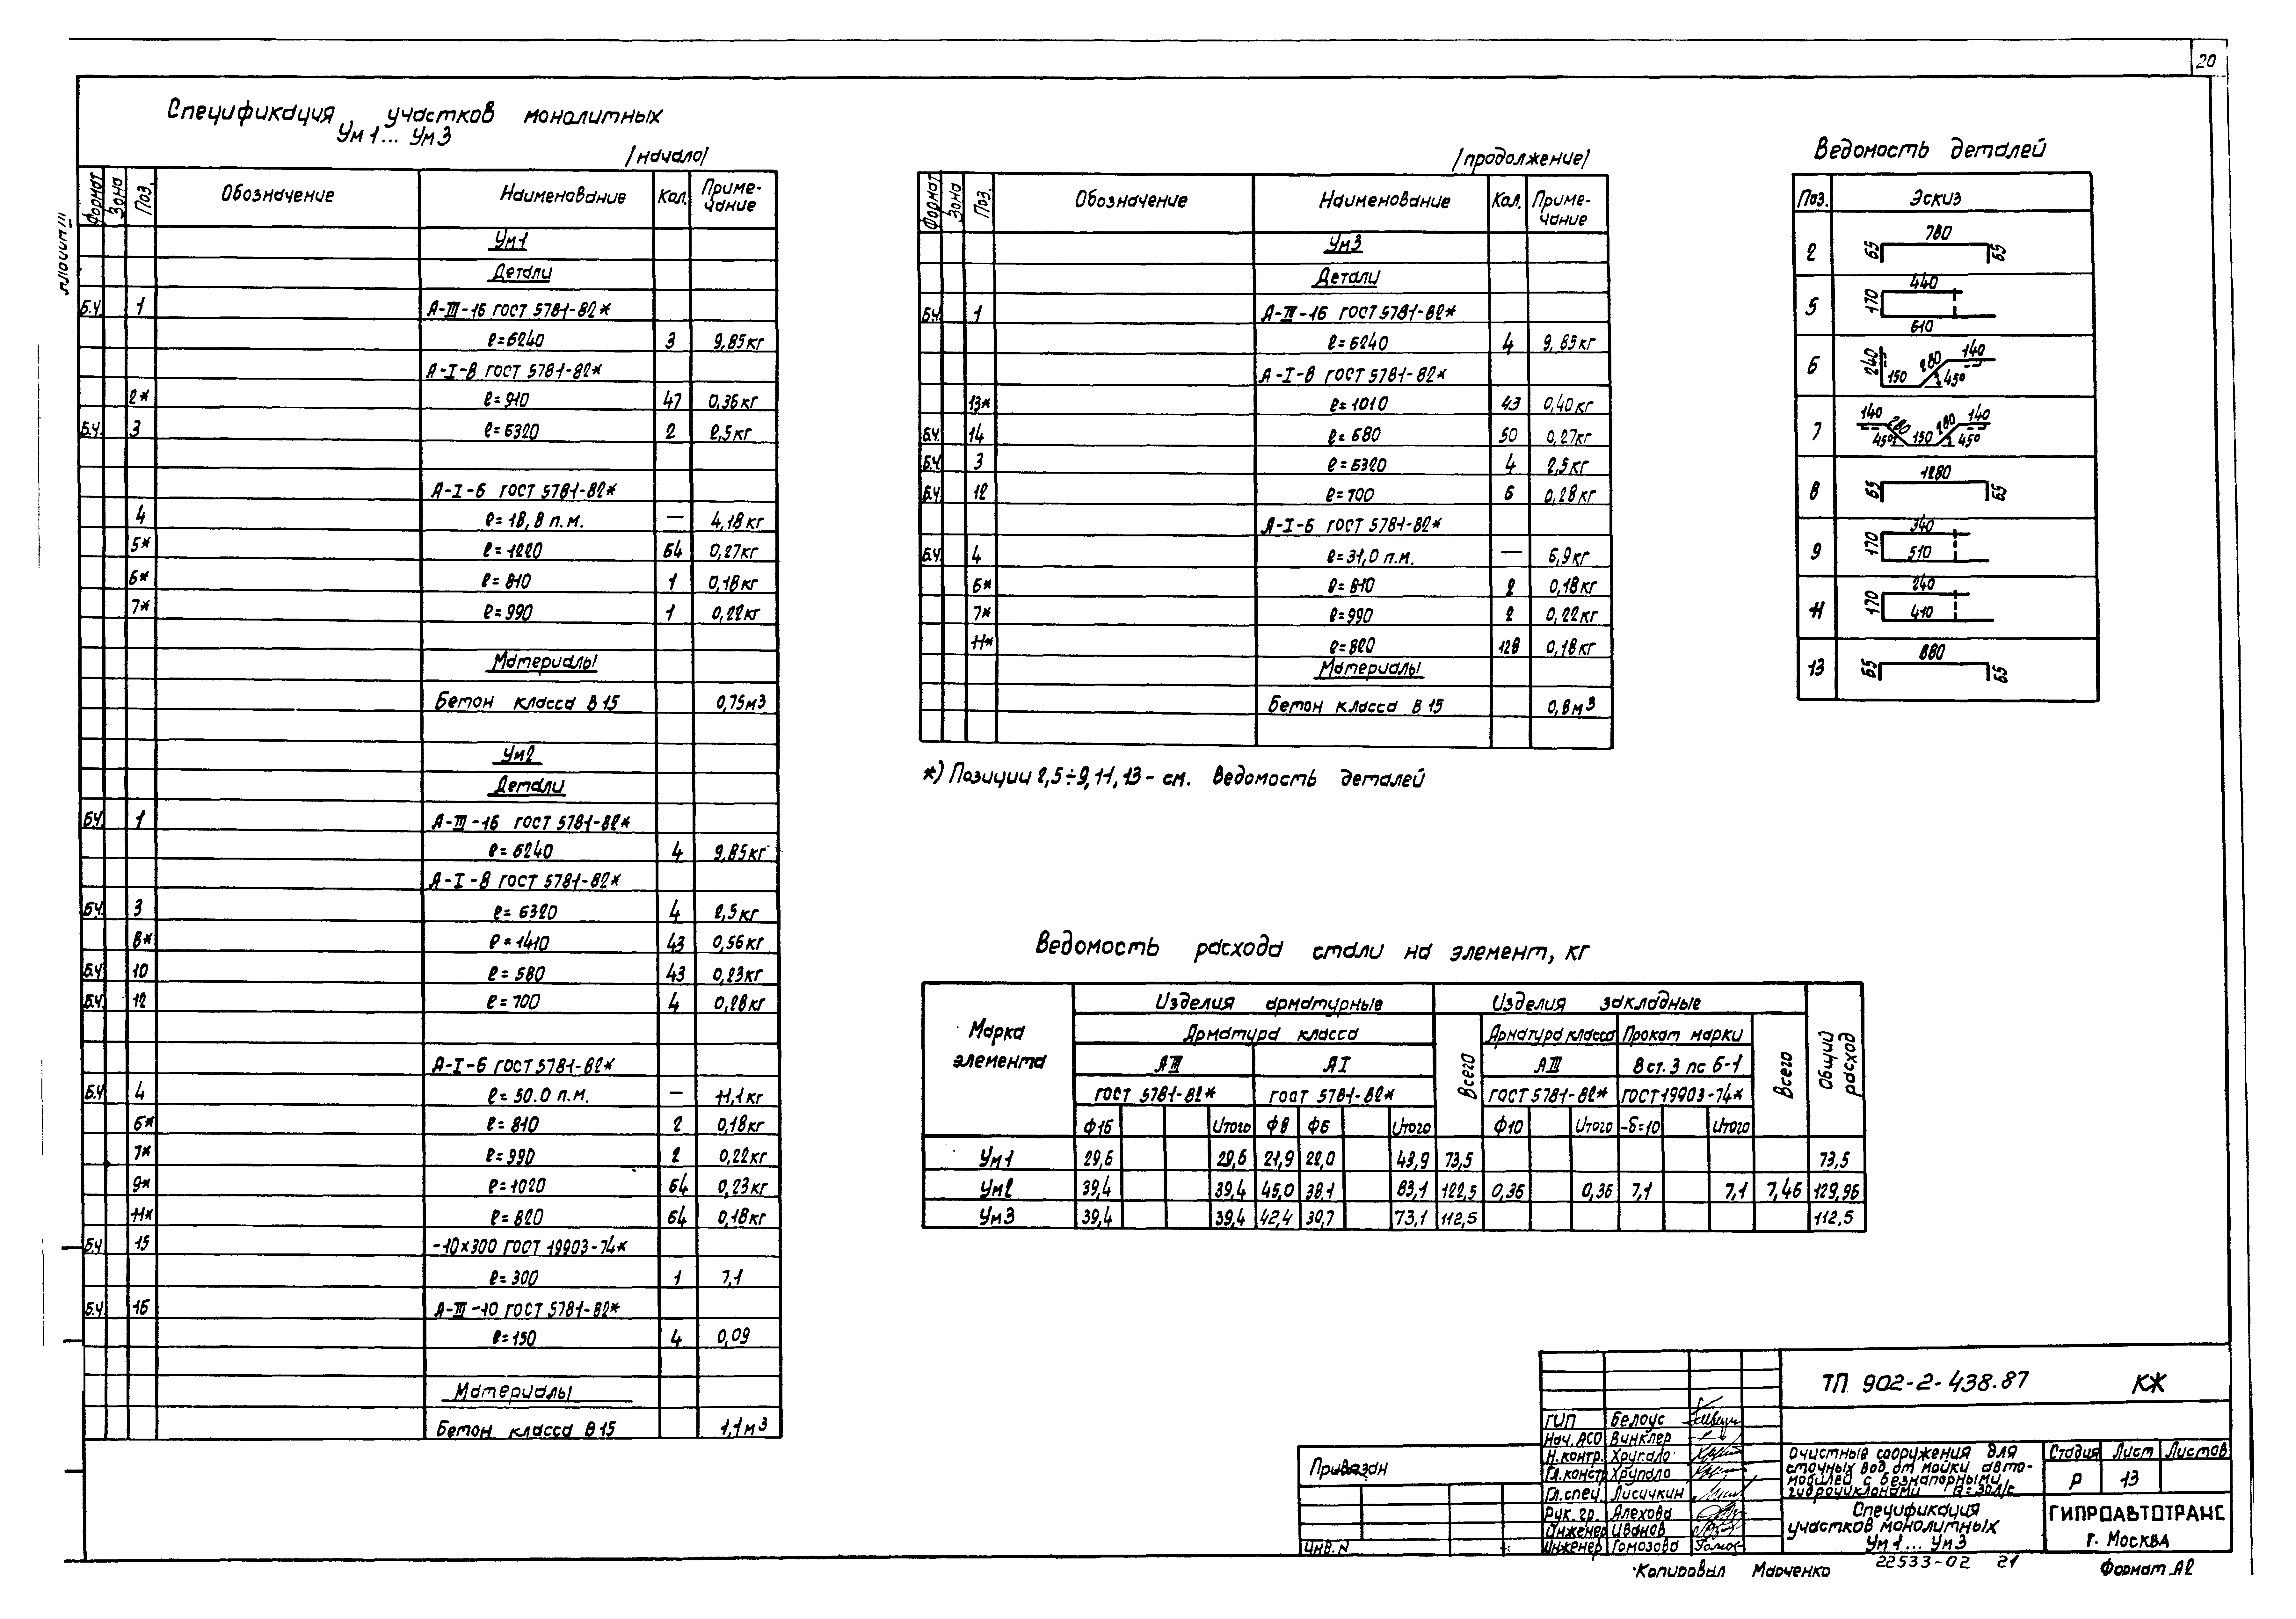 20
Спецификация участков монолитных
Ум1... Ум3
/начало/
Формат Зона Поз. Обозначение Наименование Кол. Приме-чание
Ум1
Детали
Б.Ч. 1 А-III-16 ГОСТ 5781-82*
ℓ=6240 3 9,85кг
А-I-8 ГОСТ 5781-82*
2* ℓ=910 47 0,36кг
Б.Ч. 3 ℓ=6320 2 2,5кг
А-I-6 ГОСТ 5781-82*
4 ℓ=18,8 п.м. — 4,18кг
5* ℓ=1220 64 0,27кг
6* ℓ=810 1 0,18кг
7* ℓ=990 1 0,22кг
Материалы
Бетон класса В 15 0,75м3
Ум2
Детали
Б.Ч. 1 А-III-16 ГОСТ 5781-82*
ℓ=6240 4 9,85кг
А-I-8 ГОСТ 5781-82*
Б.Ч. 3 ℓ=6320 4 2,5кг
8* ℓ=1410 43 0,56кг
Б.Ч 10 ℓ=580 43 0,23кг
Б.Ч. 12 ℓ=700 4 0,28кг
А-I-6 ГОСТ 5781-82*
Б.Ч 4 ℓ=50.0 п.м. — 11,1кг
6* ℓ=810 2 0,18кг
7* ℓ=990 2 0,22кг
9* ℓ=1020 64 0,23кг
11* ℓ=820 64 0,18кг
Б.Ч 15 -10х300 ГОСТ 19903-74*
ℓ=300 1 7,1
Б.Ч. 16 А-III-10 ГОСТ 5781-82*
ℓ=150 4 0,09
Материалы
Бетон класса В 15 1,1м3
/продолжение/
Формат Зона Поз. Обозначение Наименование Кол. Приме-чание
Ум3
Детали
Б.Ч. 1 А-III-16 ГОСТ 5781-82*
ℓ=6240 4 9,85кг
А-I-8 ГОСТ 5781-82*
13* ℓ=1010 43 0,40кг
Б.Ч. 14 ℓ=680 50 0,27кг
Б.Ч. 3 ℓ=6320 4 2,5кг
Б.Ч. 12 ℓ=700 6 0,28кг
А-I-6 ГОСТ 5781-82*
Б.Ч. 4 ℓ=31,0 п.м. — 6,9кг
6* ℓ=810 2 0,18кг
7* ℓ=990 2 0,22кг
11* ℓ=820 128 0,18кг
Материалы
Бетон класса В 15 0,8м3
*) Позиции 2,5÷9,11,13 - см. Ведомость деталей
Ведомость деталей
Поз. Эскиз
2 65 780 65
5 170 440 610
6 240 150 280 45° 140
7 140 280 45° 150 280 45° 140
8 65 1280 65
9 170 340 510
11 170 240 410
13 65 880 65
Ведомость расхода стали на элемент, кг
Марка элемента Изделия арматурные Изделия закладные Общий расход
Арматура класса Всего Арматура класса Прокат марки Всего
АIII АI АIII Вст.3 пс 6-1
ГОСТ 5781-82* ГОСТ 5781-82* ГОСТ 5781-82* ГОСТ 19903-74*
Ф16 Итого Ф8 Ф6 Итого Ф10 Итого -δ=10 Итого
Ум1 29,6 29,6 21,9 22,0 43,9 73,5 73,5
Ум2 39,4 39,4 45,0 38,1 83,1 122,5 0,36 0,36 7,1 7,1 7,46 129,96
Ум3 39,4 39,4 42,4 30,7 73,1 112,5 112,5
ТП 902-2-438.87 КЖ
ГИП Белоус
Нач. АСО Винклер
Н.контр. Хрупало
Гл.констр Хрупало
Гл.спец. Лисичкин
Рук. гр. Алехова
Инженер Иванов
Инженер Гомозова
Привязан
Инв. N
Очистные сооружения для
сточных вод от мойки авто-
мобилей с безнапорными
гидроциклонами Q=30л/с
Стадия Лист Листов
Р 13
Спецификация
участков монолитных
Ум1... Ум3
ГИПРОАВТОТРАНС
г. Москва
22533-02 21
Копировал Марченко
Формат А2